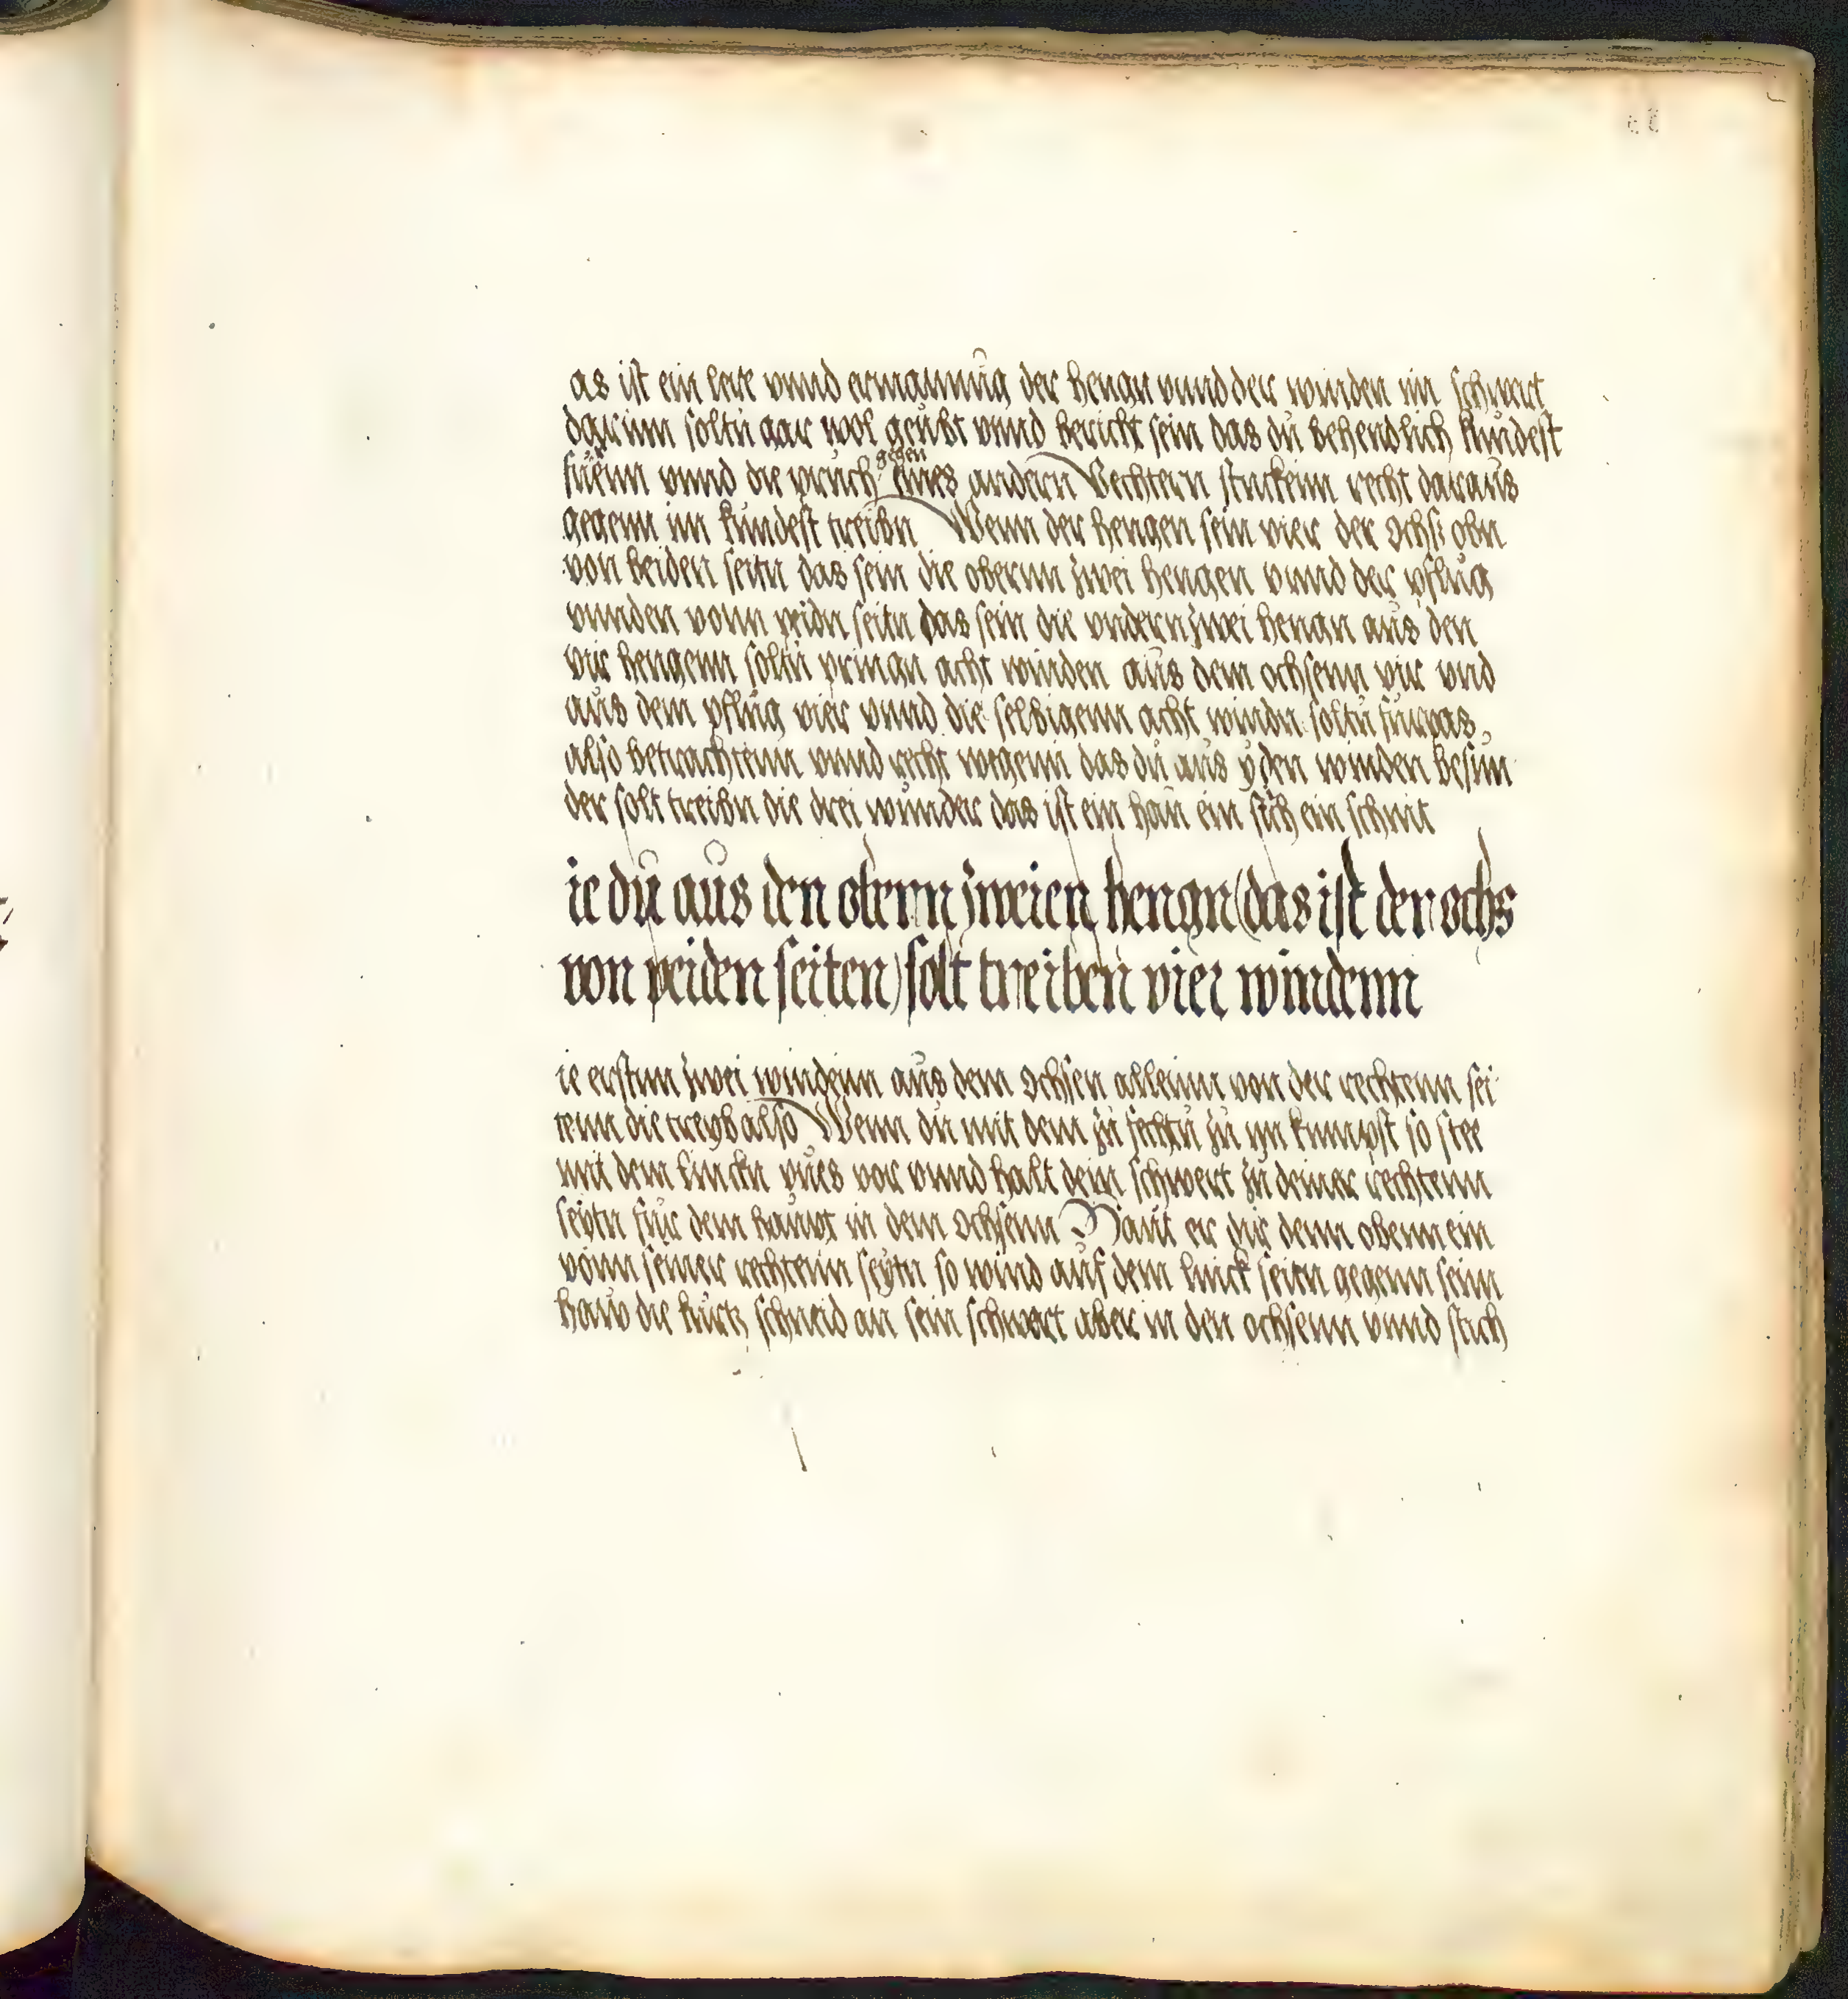 as ist ein lere vnnd ermannũg der hengn vnnd der winden im schwert
darinn soltu gar wol geubt vnnd bericht sein das dů behendlich kündest
füern vnnd die pruch gegen eines andern Vechtern stuckenn recht daraus
gegenn im kundest treibn Wenn der hengen sein vier der ochs obn
von beiden seitn das sein die obernn zwei hengen vnnd der pflůg
vnnden vonn peidn seitn das sein die vndern zwei hengn aus den
vir hengenn soltu pringn acht winden aůs dem ochsenn vir vnd
aůs dem pflůg vier vnnd die selbigenn acht windn soltu furpas
also betrachtenn vnnd recht wegenn das dů aůs yden winden besun
der solt treibn die drei wunder das ist ein haů ein stich ein schnit
ie dů aůs den obern zweien hengn (das ist der ochs
von peiden seiten) solt treiben vier windenn
ie erstnn zwei windenn aůs dem ochsen alleinn von der rechtenn sei
tenn die treyb also Wenn dů mit dem zů fechtn zů im kumpst so stee
mit dem linckn vues vor vnnd halt dein schwert zů deiner rechtenn
seytn für dem haupt in dem ochsenn Hault er dir denn obenn ein
vonn seiner rechtenn seytn so wind auf dem linck seitn gegenn seinn
haw die kurtz schneid an sein schwert aber in den ochsenn vnnd stich